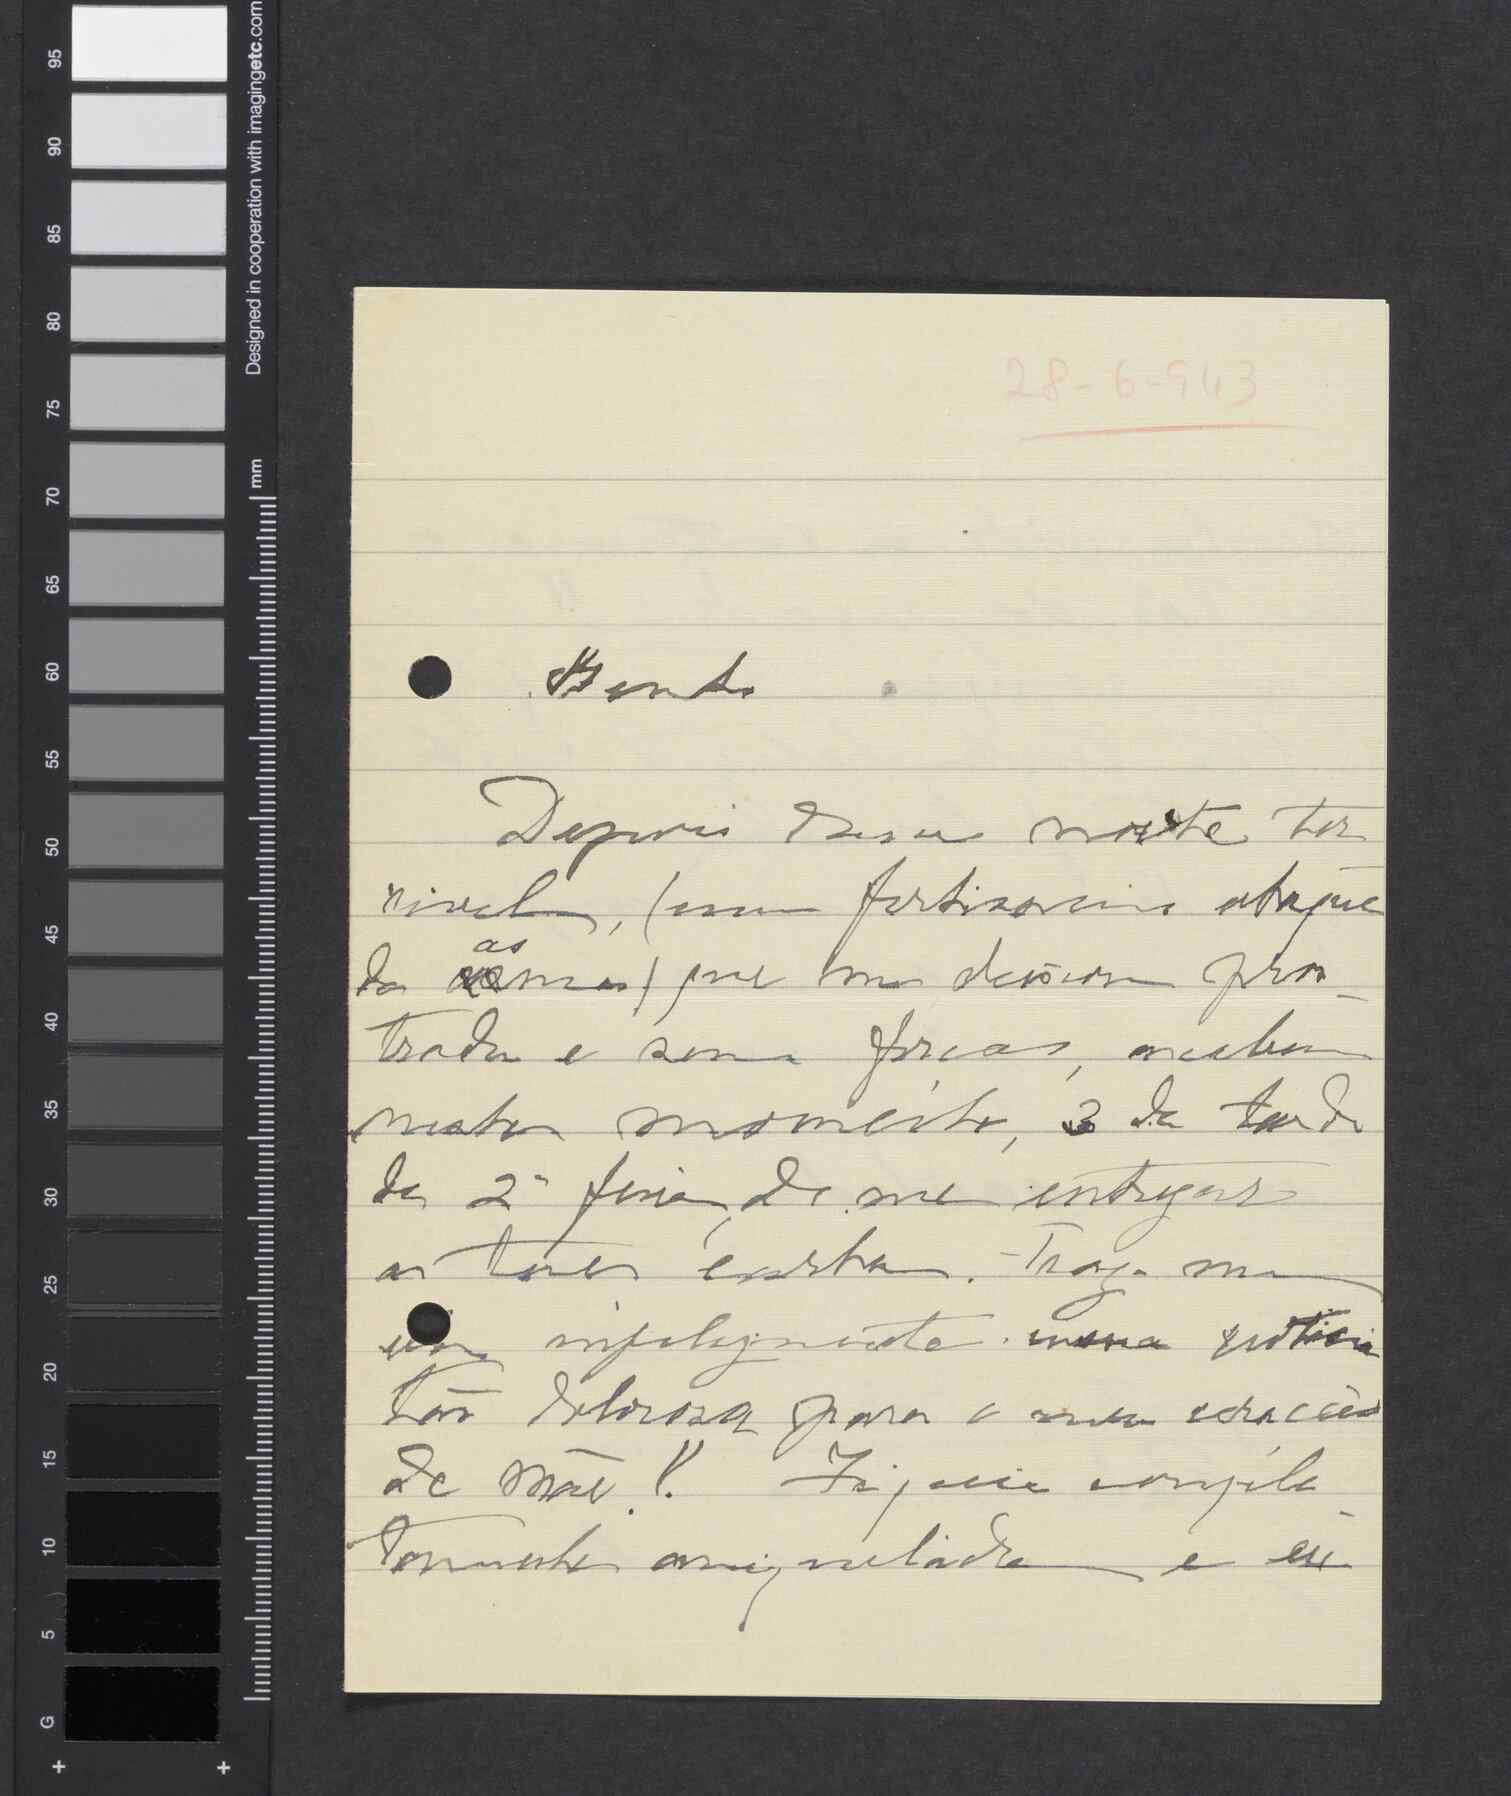 95
90
85
80
75
70
65
60
55
50
45
40
35
30
25
20
15
10
5
G
mm
Designed in cooperation with imagingetc.com
28-6-943
Bento
Depois duma noite ter
rivel, (um fortissimo ataque
da asma) que me deixou pros
trada e sem forças, acabam
neste momento, 3 da tarde
da 2ª feira, de me entregar
a tua carta. Traz-me
uma noticia
tão dolorosa para o meu coração
de mãe!! Fiquei comple
tamente aniquilada e